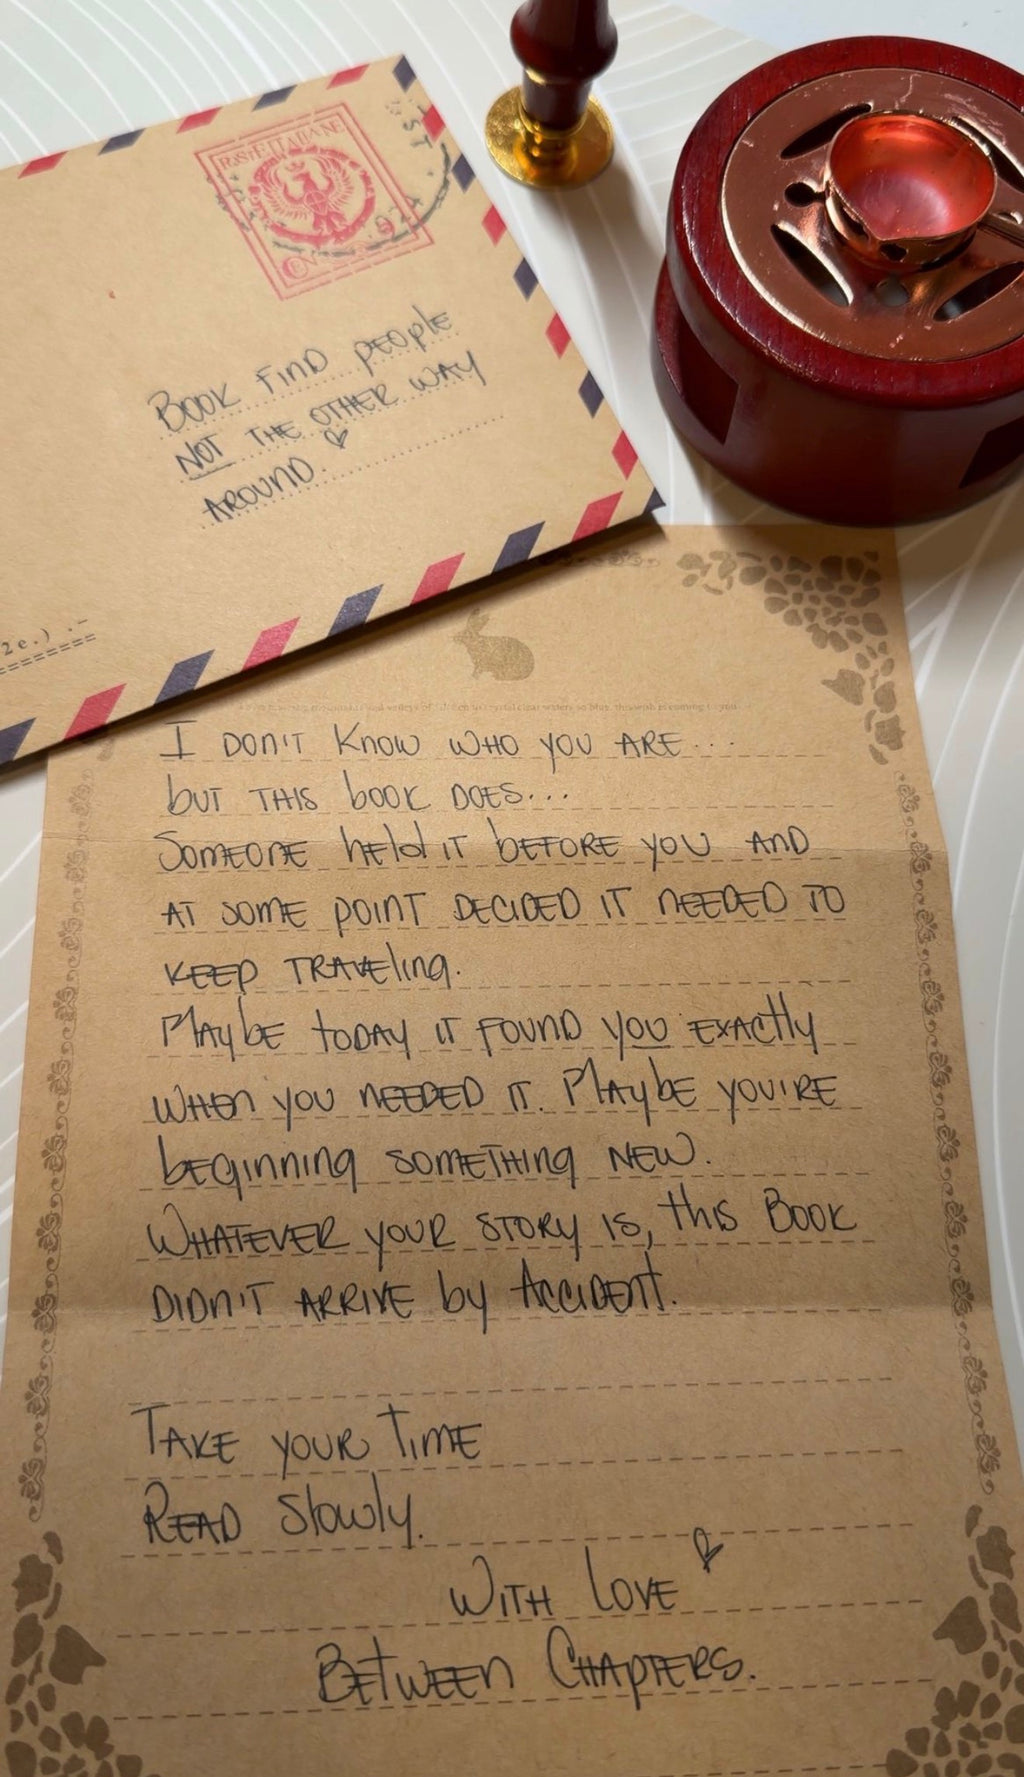 POSTE ITALIANE
CENT
BOOK FIND people
NOT THE OTHER WAY
AROUND.
2e.) .-
I DON'T KNOW WHO YOU ARE...
but THIS book DOES...
SOMEONE held IT bEFORE YOU AND
AT SOME POINT DECIDED IT NEEDED TO
KEEP TRAVEling.
MAybE TODAY IT FOUND YOU EXACtly
WHEN YOU NEEDED IT. MAybE YOU'RE
bEginning SOMETHING NEW.
WHATEVER YOUR STORY IS, this BOOK
DIDN'T ARRIVE by ACCIDENT.
TAKE YOUR TIME
READ Slowly.
WITH LOVE
BETWEEN CHAPTERS.